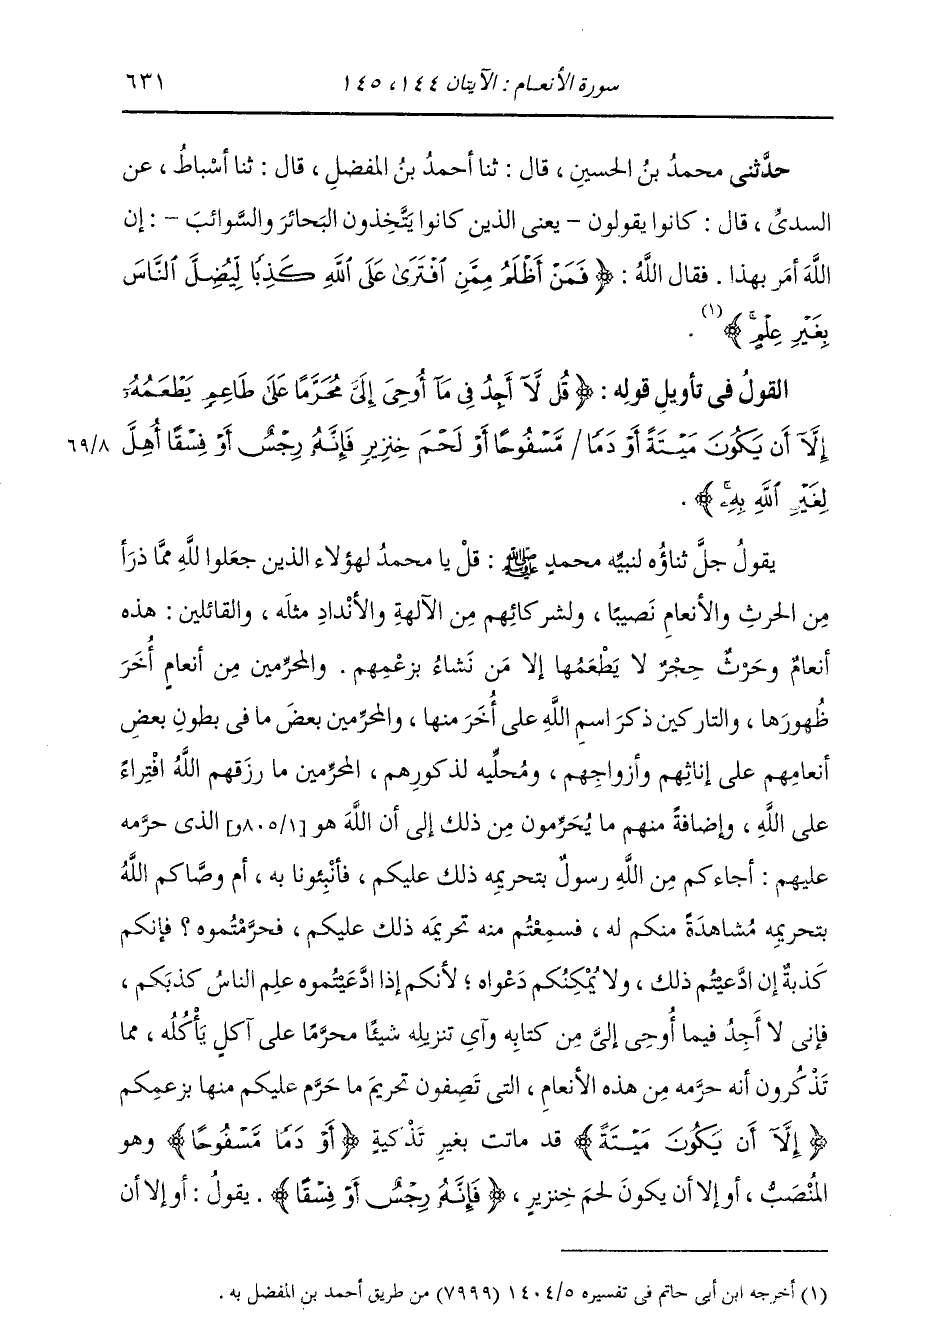 سورة الأنعام : الآيتان ١٤٤، ١٤٥ ٦٣١
حدَّثنى محمدُ بنُ الحسينِ ، قال : ثنا أحمدُ بنُ المفضلِ ، قال : ثنا أسْباطُ ، عن
السدىِّ ، قال : كانوا يقولون – يعنى الذين كانوا يَتَّخِذون البَحائرَ والسَّوائبَ – : إن
اللَّهَ أمَر بهذا . فقال اللَّهُ : ﴿ فَمَنْ أَظْلَمُ مِمَّنِ ٱفْتَرَىٰ عَلَى ٱللَّهِ كَذِبًا لِيُضِلَّ ٱلنَّاسَ
بِغَيْرِ عِلْمٍ ﴾(١) .
القولُ فى تأويلِ قولِه : ﴿ قُل لَّآ أَجِدُ فِى مَآ أُوحِىَ إِلَىَّ مُحَرَّمًا عَلَىٰ طَاعِمٍ يَطْعَمُهُۥٓ
إِلَّآ أَن يَكُونَ مَيْتَةً أَوْ دَمًا / مَّسْفُوحًا أَوْ لَحْمَ خِنزِيرٍ فَإِنَّهُۥ رِجْسٌ أَوْ فِسْقًا أُهِلَّ ٦٩/٨
لِغَيْرِ ٱللَّهِ بِهِۦ ﴾ .
يقولُ جلَّ ثناؤُه لنبيِّه محمدٍ ﷺ : قلْ يا محمدُ لهؤلاء الذين جعَلوا للَّهِ ممَّا ذرَأ
مِن الحرثِ والأنعامِ نَصيبًا ، ولشركائِهم مِن الآلهةِ والأنْدادِ مثلَه ، والقائلين : هذه
أنعامٌ وحَرْثٌ حِجْرٌ لا يَطْعَمُها إلا مَن نَشاءُ بزعْمِهم . والمحرِّمين مِن أنعامٍ أُخَرَ
ظُهورَها ، والتاركين ذكرَ اسمِ اللَّهِ على أُخَرَ منها ، والمحرِّمين بعضَ ما فى بطونِ بعضِ
أنعامِهم على إناثِهم وأزواجِهم ، ومُحلِّيه لذكورِهم ، المحرِّمين ما رزَقهم اللَّهُ افْتِراءً
على اللَّهِ ، وإضافةً منهم ما يُحَرِّمون مِن ذلك إلى أن اللَّهَ هو [٨٠٥/١و] الذى حرَّمه
عليهم : أجاءكم مِن اللَّهِ رسولٌ بتحريمِه ذلك عليكم ، فأنْبِئونا به ، أم وصَّاكم اللَّهُ
بتحريمِه مُشاهدَةً منكم له ، فسمِعْتُم منه تحريمَه ذلك عليكم ، فحرَّمْتُموه ؟ فإنكم
كَذبةٌ إن ادَّعَيْتُم ذلك ، ولا يُمْكِنُكم دَعْواه ؛ لأنكم إذا ادَّعَيْتُموه علِم الناسُ كذبَكم ،
فإنى لا أَجِدُ فيما أُوحِى إلىَّ مِن كتابِه وآىِ تنزيلِه شيئًا محرَّمًا على آكلٍ يَأْكُلُه ، مما
تَذْكُرون أنه حرَّمه مِن هذه الأنعامِ ، التى تَصِفون تحريمَ ما حَرَّم عليكم منها بزعمِكم
﴿ إِلَّآ أَن يَكُونَ مَيْتَةً ﴾ قد ماتت بغيرِ تَذْكيةٍ ﴿ أَوْ دَمًا مَّسْفُوحًا ﴾ وهو
المُنْصَبُّ ، أو إلا أن يكونَ لحمَ خِنزيرٍ ، ﴿ فَإِنَّهُۥ رِجْسٌ أَوْ فِسْقًا ﴾ . يقولُ : أو إلا أن
(١) أخرجه ابن أبى حاتم فى تفسيره ١٤٠٤/٥ (٧٩٩٩) من طريق أحمد بن المفضل به .